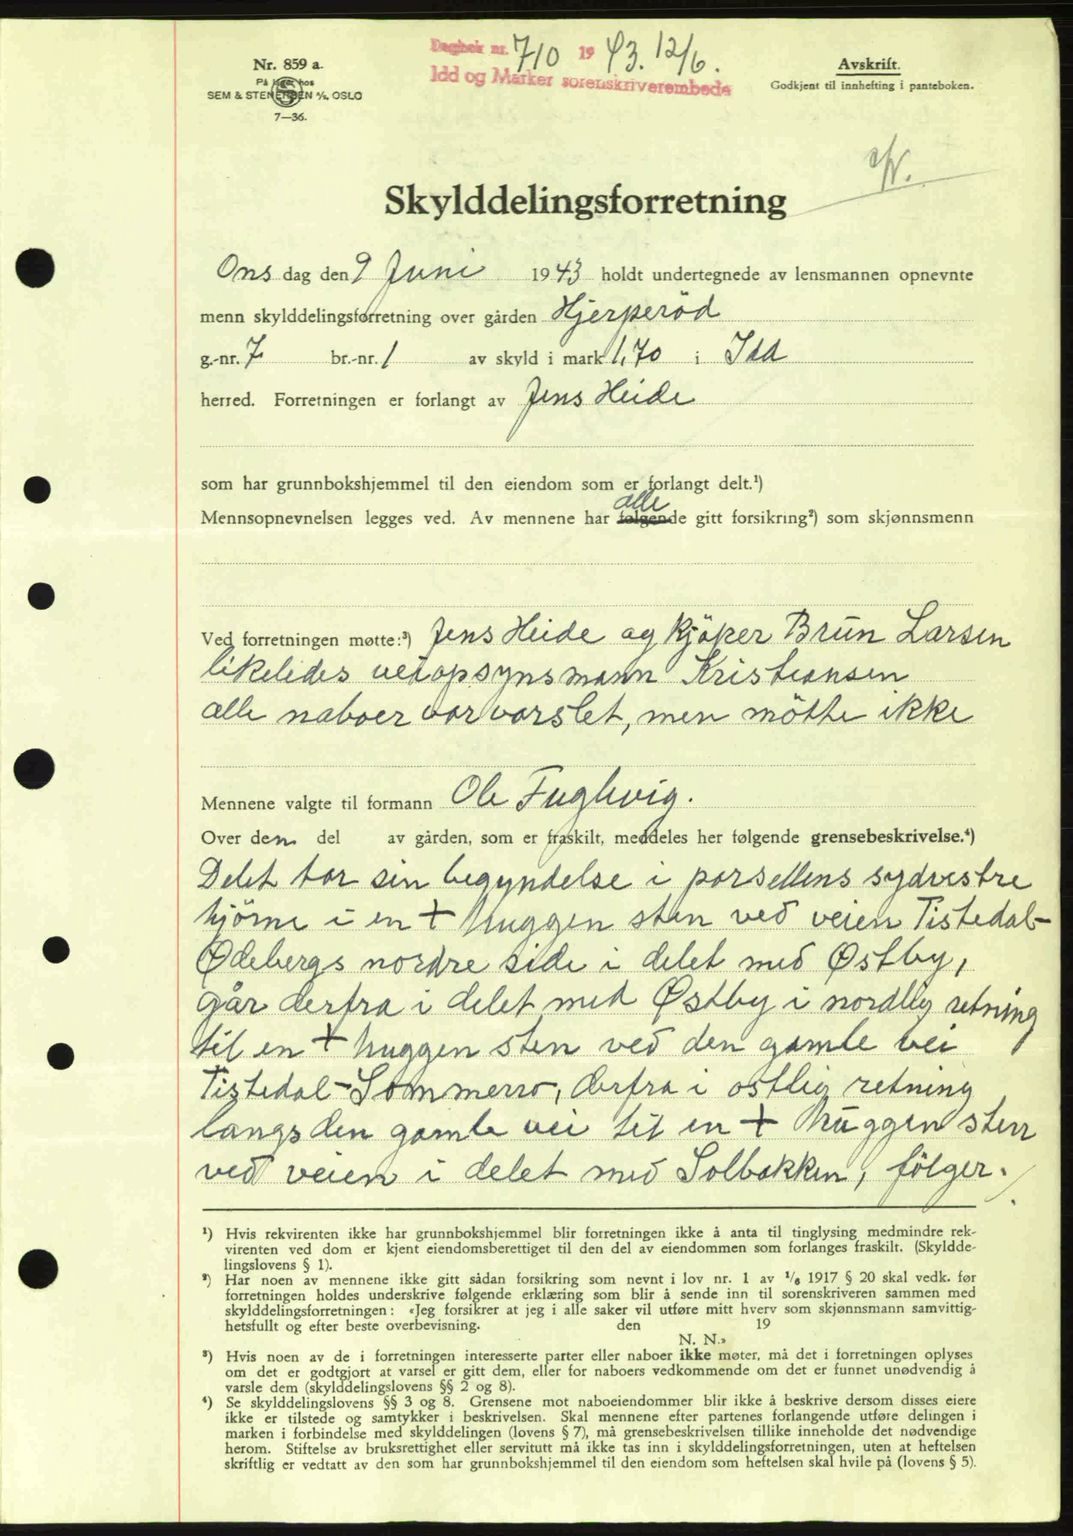 Dagbok nr. 710 1943. 12/6.
Idd og Marker sorenskriverembede
Nr. 859 a.
På lager hos
SEM & STENERSEN A/S, OSLO
7—36.
Avskrift.
Godkjent til innhefting i panteboken.
Skylddelingsforretning
Ons dag den 9 Juni 1943 holdt undertegnede av lensmannen opnevnte
menn skylddelingsforretning over gården Hjerperöd
g.-nr. 7 br.-nr. 1 av skyld i mark 1,70 i Idd
herred. Forretningen er forlangt av Jens Heide
som har grunnbokshjemmel til den eiendom som er forlangt delt.¹)
alle
Mennsopnevnelsen legges ved. Av mennene har følgende gitt forsikring²) som skjønnsmenn
Ved forretningen møtte:³) Jens Heide og kjöper Brün Larsen
likeledes veiopsynsmann Kristiansen
alle naboer var varslet, men mötte ikke
Mennene valgte til formann Ole Fuglevig.
Over den del av gården, som er fraskilt, meddeles her følgende grensebeskrivelse.⁴)
Delet tar sin begyndelse i parsellens sydvestre
hjörne i en + huggen sten ved veien Tistedal-
Ødebergs nordre side i delet med Østby,
går derfra i delet med Østby i nordlig retning
til en + huggen sten ved den gamle vei
Tistedal-Sommerro, derfra i ostlig retning
langs den gamle vei til en + huggen sten
ved veien i delet med Solbakken, fölger.
¹) Hvis rekvirenten ikke har grunnbokshjemmel blir forretningen ikke å anta til tinglysing medmindre rek-
virenten ved dom er kjent eiendomsberettiget til den del av eiendommen som forlanges fraskilt. (Skyldde-
lingslovens § 1).
²) Har noen av mennene ikke gitt sådan forsikring som nevnt i lov nr. 1 av 1/6 1917 § 20 skal vedk. før
forretningen holdes underskrive følgende erklæring som blir å sende inn til sorenskriveren sammen med
skylddelingsforretningen: «Jeg forsikrer at jeg i alle saker vil utføre mitt hverv som skjønnsmann samvittig-
hetsfullt og efter beste overbevisning. den 19
N. N.»
³) Hvis noen av de i forretningen interesserte parter eller naboer ikke møter, må det i forretningen oplyses
om det er godtgjort at varsel er gitt dem, eller for naboers vedkommende om det er funnet unødvendig å
varsle dem (skylddelingslovens §§ 2 og 8).
⁴) Se skylddelingslovens §§ 3 og 8. Grensene mot naboeiendommer blir ikke å beskrive dersom disses eiere
ikke er tilstede og samtykker i beskrivelsen. Skal mennene efter partenes forlangende utføre delingen i
marken i forbindelse med skylddelingen (lovens § 7), må grensebeskrivelsen tillike inneholde det nødvendige
herom. Stiftelse av bruksrettighet eller servitutt må ikke tas inn i skylddelingsforretningen, uten at heftelsen
skriftlig er vedtatt av den som har grunnbokshjemmel til den eiendom som heftelsen skal hvile på (lovens § 5).